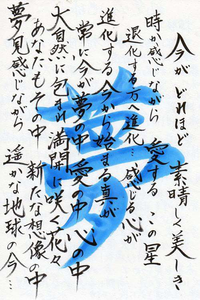 今がどれほど 素晴しく美しき
時か感じながら 愛する この星
退化する方へ進化…感じる心が
進化する今から始まる真が
常に今が夢の中愛の中心の中
大自然に包まれ満開に咲く花々
あなたもその中 新たな想像の中
夢見感じながら 遥かな地球の今…
夢